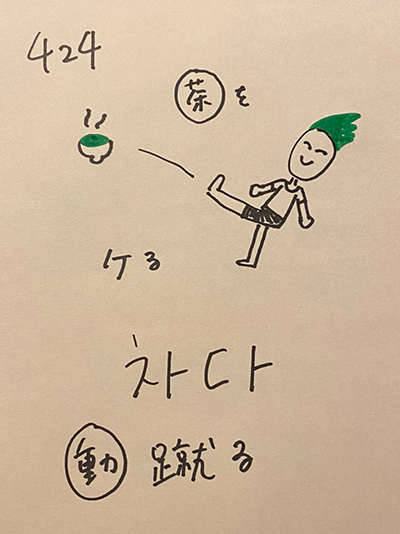 424
茶を
ケる
차다
動 蹴る